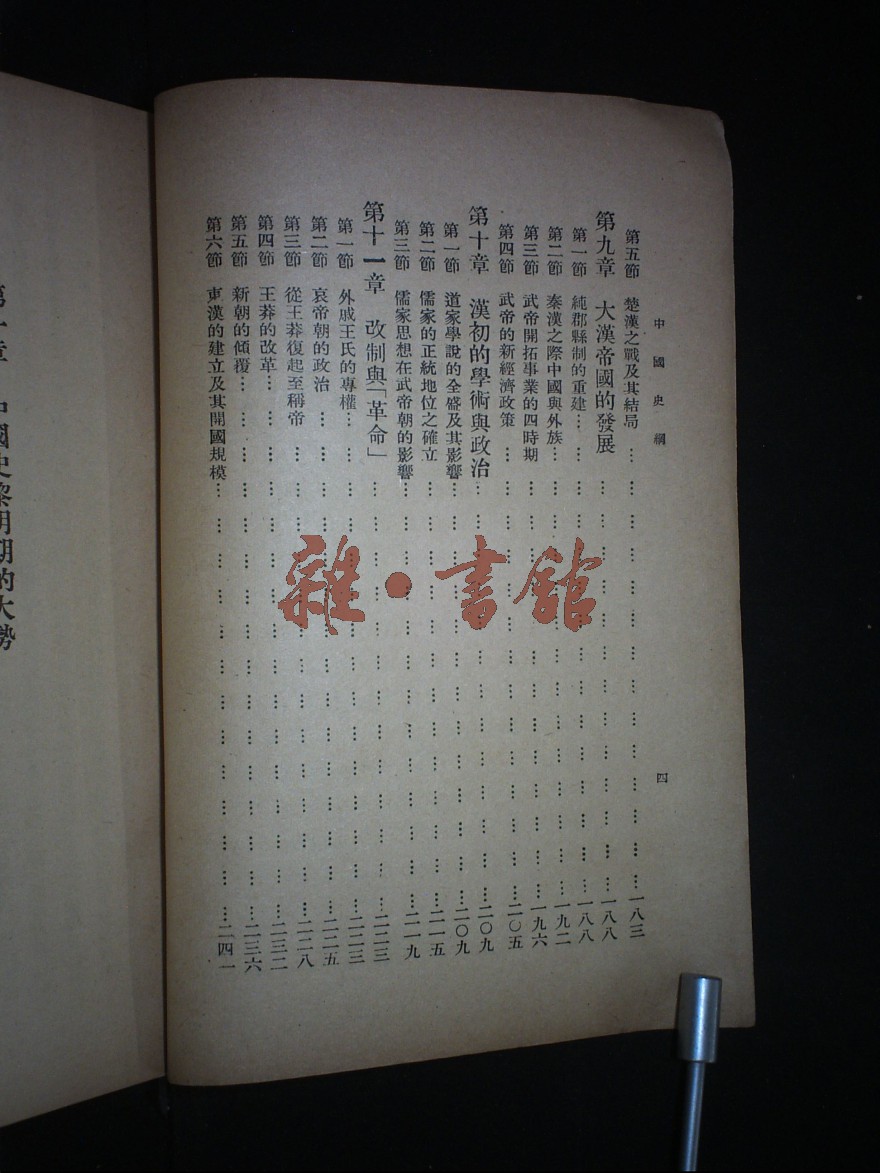 中國史綱
四
第五節 楚漢之戰及其結局……一八三
第九章 大漢帝國的發展……一八八
第一節 純郡縣制的重建……一八八
第二節 秦漢之際中國與外族……一九二
第三節 武帝開拓事業的四時期……一九六
第四節 武帝的新經濟政策……二〇五
第十章 漢初的學術與政治……二〇九
第一節 道家學說的全盛及其影響……二〇九
第二節 儒家的正統地位之確立……二一五
第三節 儒家思想在武帝朝的影響……二一九
第十一章 改制與「革命」……二二三
第一節 外戚王氏的專權……二二三
第二節 哀帝朝的政治……二二五
第三節 從王莽復起至稱帝……二二八
第四節 王莽的改革……二三二
第五節 新朝的傾覆……二三六
第六節 東漢的建立及其開國規模……二四一
雜·書館
第一章 中國史黎明期的大勢